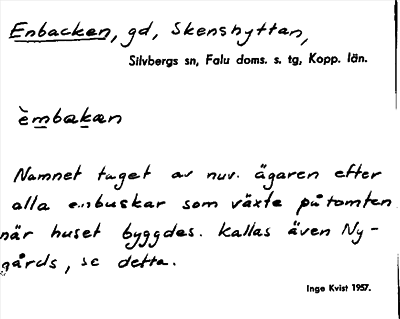 Enbacken, gd, Skenshyttan,
Silvbergs sn, Falu doms. s. tg, Kopp. län.
èmbakan
Namnet taget av nuv. ägaren efter
alla enbuskar som växte på tomten
när huset byggdes. Kallas även Ny-
gårds, se detta.
Inge Kvist 1957.